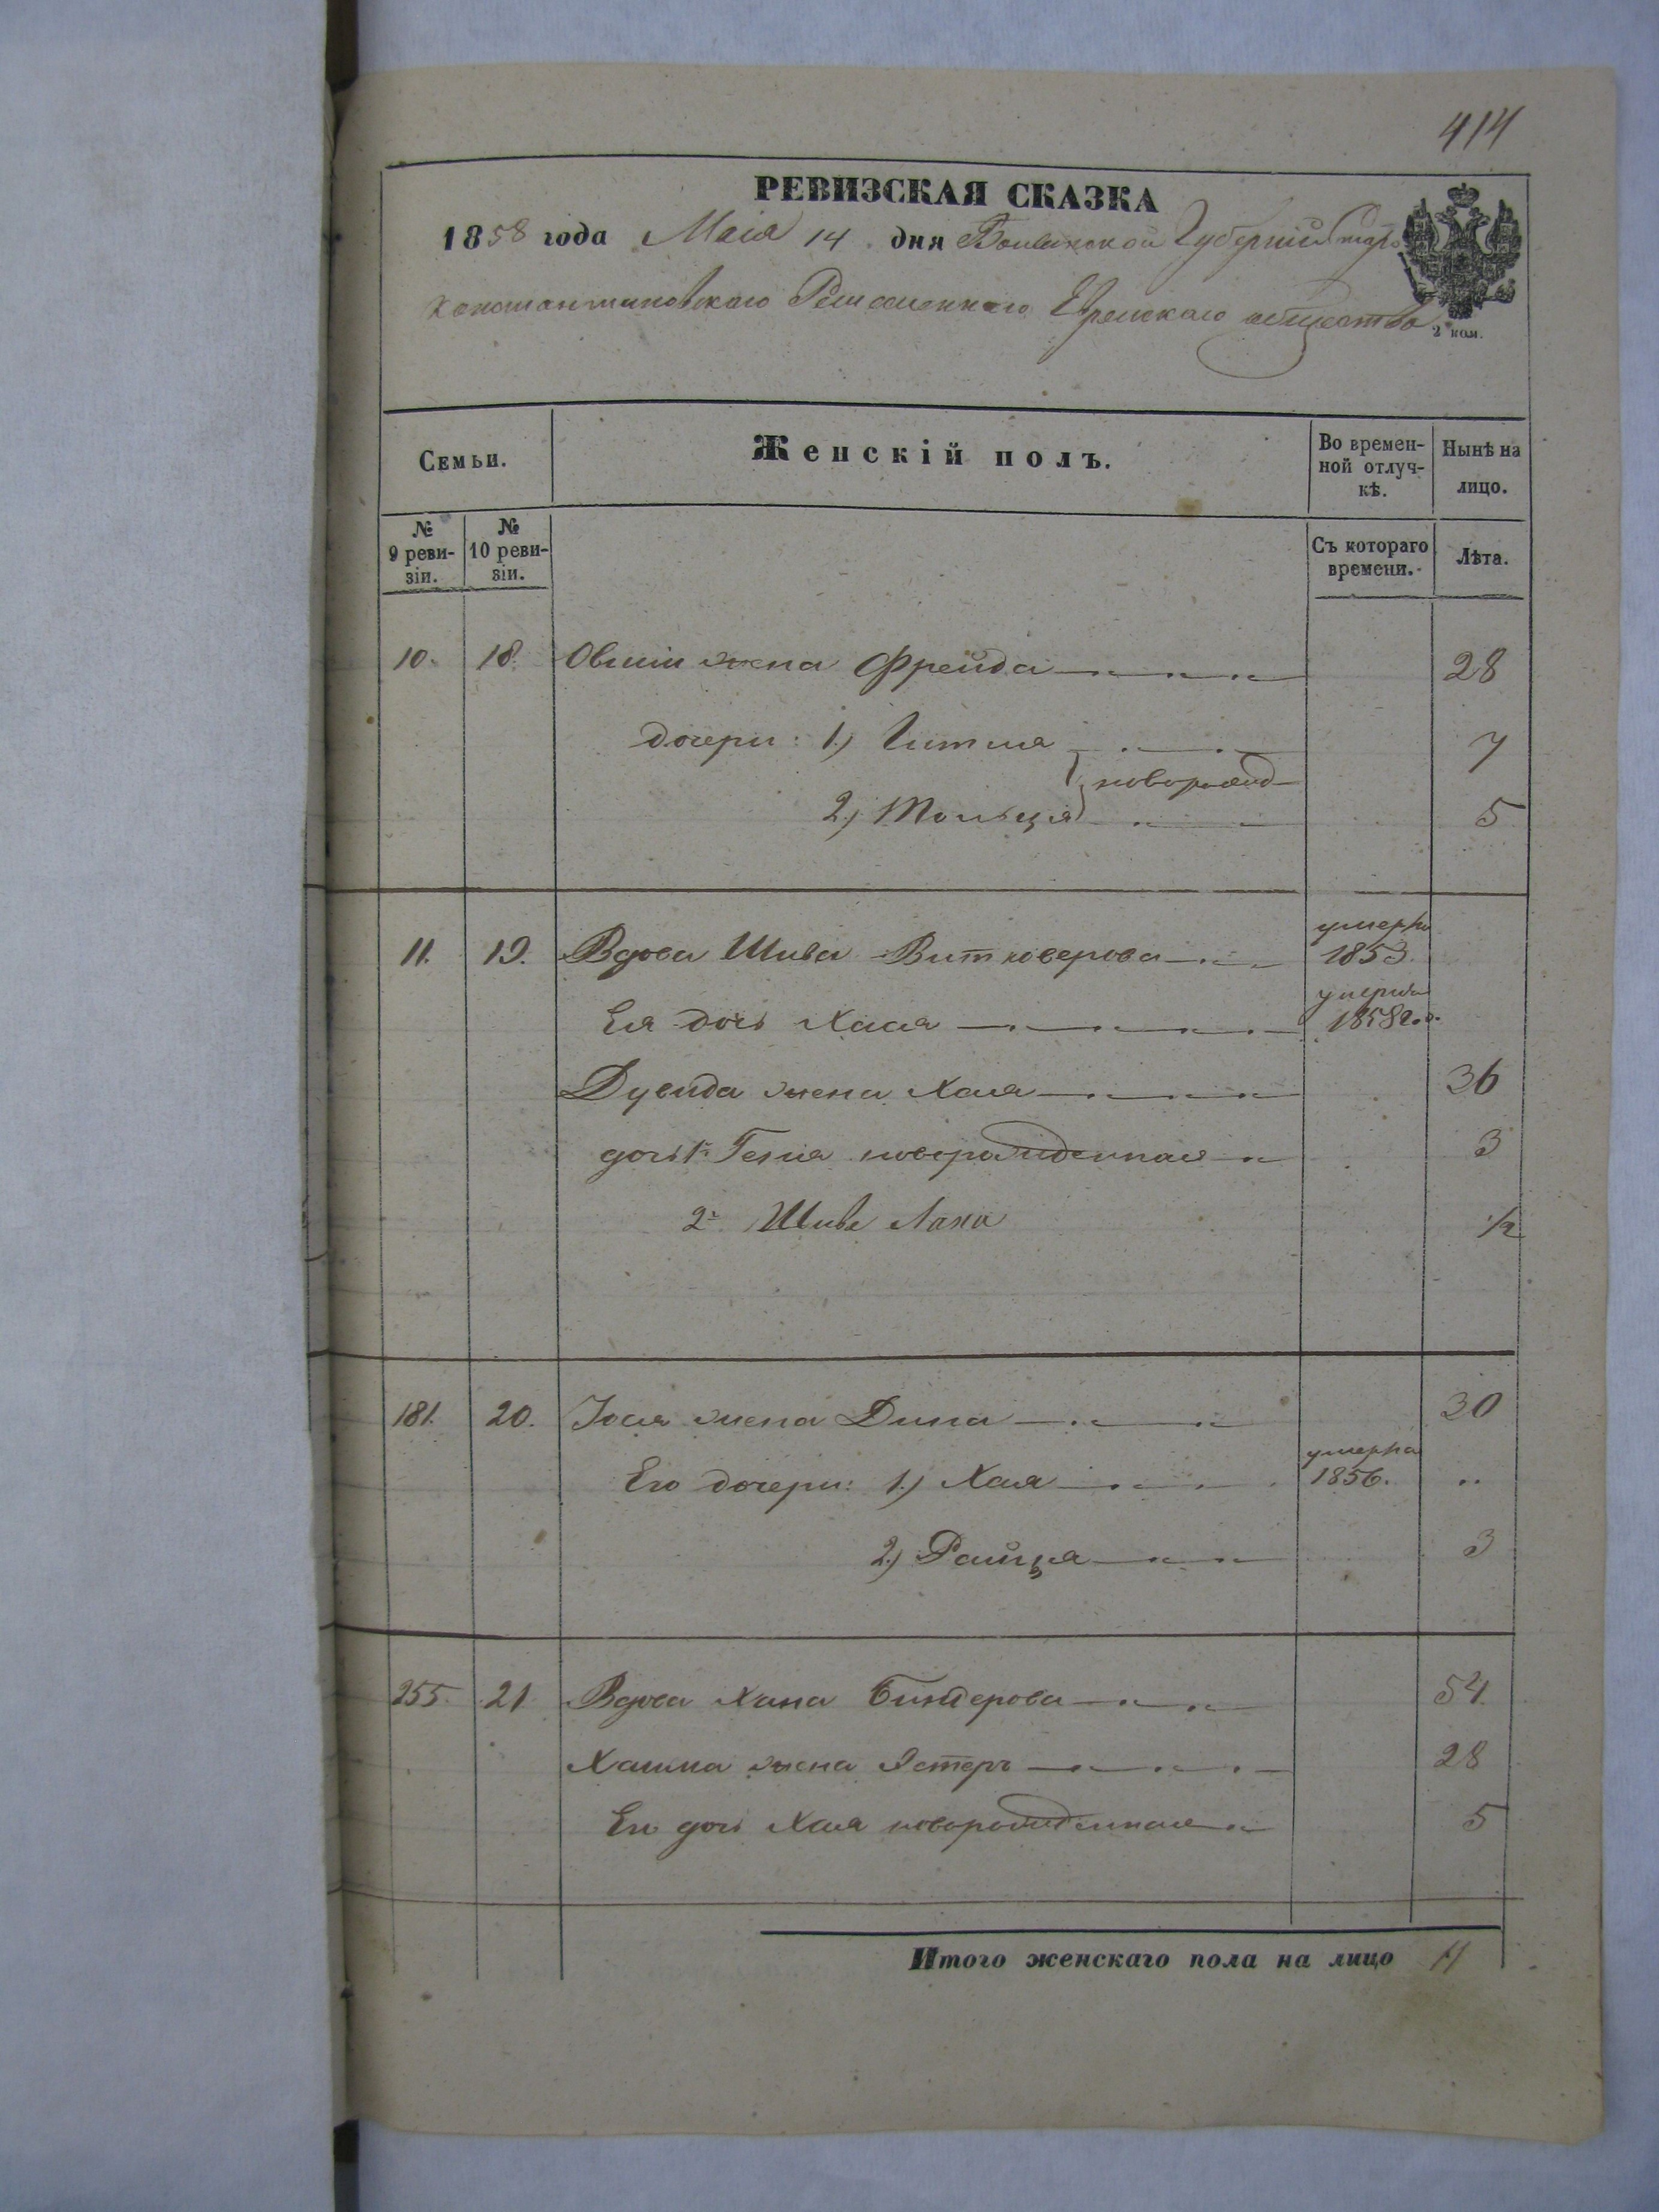 414
РЕВИЗСКАЯ СКАЗКА
1858 года Маія 14 дня Волынской Губерніи Старо
константиновскаго Еврейскаго общества
2 коп.
Семьи. Женскій полъ. Во времен- Нынѣ на
ной отлуч- лицо.
кѣ.
№ № Съ котораго Лѣта.
9 реви- 10 реви- времени.
зіи. зіи.
10. 18. Овшіи жена Фрейда 28
дочери: 1.) Гитля 7
новорожд
2.) Тольця 5
умерла
11. 19. Вдова Шива Витковерова 1853.
умерла
Ея дочь Хася 1858го.
Дувида жена Хая 36
дочь 1я Геня новорожденная 3
2я Шива Лана 1/2
181. 20. Іося жена Дина 30
умерла
Его дочери: 1.) Хая 1856. "
2.) Райця 3
255. 21 Вдова Хана Биндерова 54.
Хаима жена Эстеръ 28
Ея дочь Хая новорожденная 5
Итого женскаго пола на лицо 11